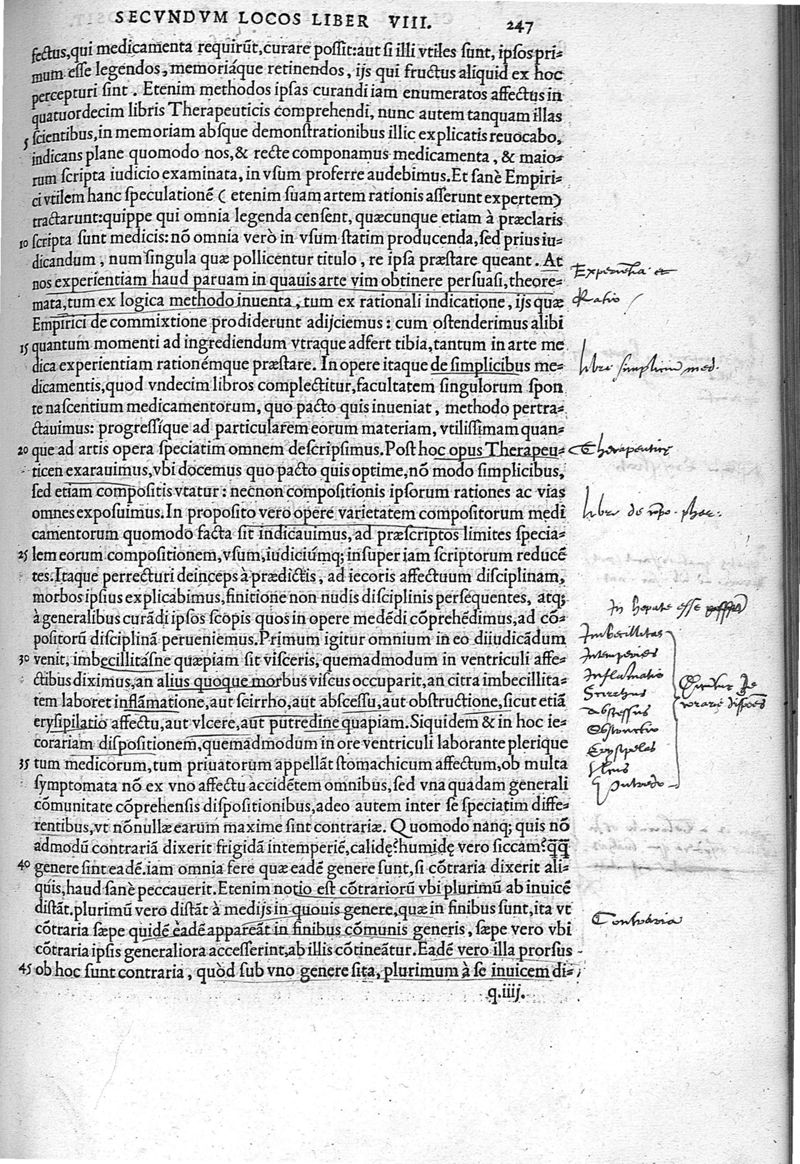 SECVNDVM LOCOS LIBER VIII. 247
fectus, qui medicamenta requirūt, curare possit: aut si illi vtiles sunt, ipsos pri-
mum esse legendos, memoriáque retinendos, ijs qui fructus aliquid ex hoc
percepturi sint. Etenim methodos ipsas curandi iam enumeratos affectus in
quatuordecim libris Therapeuticis comprehendi, nunc autem tanquam illas
5 scientibus, in memoriam absque demonstrationibus illic explicatis reuocabo,
indicans plane quomodo nos, & recte componamus medicamenta, & maio-
rum scripta iudicio examinata, in vsum proferre audebimus. Et sanè Empiri-
ci vtilem hanc speculationē ( etenim suam artem rationis asserunt expertem)
tractarunt: quippe qui omnia legenda censent, quæcunque etiam à præclaris
10 scripta sunt medicis: nō omnia verò in vsum statim producenda, sed prius iu-
dicandum, num singula quæ pollicentur titulo, re ipsa præstare queant. At
nos experientiam haud paruam in quauis arte vim obtinere persuasi, theore-
mata, tum ex logica methodo inuenta, tum ex rationali indicatione, ijs quæ
Empirici de commixtione prodiderunt adijciemus: cum ostenderimus alibi
15 quantum momenti ad ingrediendum vtraque adfert tibia, tantum in arte me
dica experientiam rationémque præstare. In opere itaque de simplicibus me-
dicamentis, quod vndecim libros complectitur, facultatem singulorum spon
te nascentium medicamentorum, quo pacto quis inueniat, methodo pertra-
ctauimus: progressíque ad particularem eorum materiam, vtilissimam quan-
20 que ad artis opera speciatim omnem descripsimus. Post hoc opus Therapeu-
ticen exarauimus, vbi docemus quo pacto quis optime, nō modo simplicibus,
sed etiam compositis vtatur: necnon compositionis ipsorum rationes ac vias
omnes exposuimus. In proposito vero opere varietatem compositorum medi
camentorum quomodo facta sit indicauimus, ad præscriptos limites specia-
25 lem eorum compositionem, vsum, iudiciúmq; insuper iam scriptorum reducē
tes. Itaque perrecturi deinceps à prædictis, ad iecoris affectuum disciplinam,
morbos ipsius explicabimus, finitione non nudis disciplinis persequentes, atq;
à generalibus curādi ipsos scopis quos in opere medēdi cōprehēdimus, ad cō-
positorū disciplinā perueniemus. Primum igitur omnium in eo diiudicādum
30 venit, imbecillitásne quæpiam sit visceris, quemadmodum in ventriculi affe-
ctibus diximus, an alius quoque morbus viscus occuparit, an citra imbecillita-
tem laboret inflāmatione, aut scirrho, aut abscessu, aut obstructione, sicut etiā
erysipilatio affectu, aut vlcere, aut putredine quapiam. Siquidem & in hoc ie-
corariam dispositionem, quemadmodum in ore ventriculi laborante plerique
35 tum medicorum, tum priuatorum appellāt stomachicum affectum, ob multa
symptomata nō ex vno affectu accidētem omnibus, sed vna quadam generali
cōmunitate cōprehensis dispositionibus, adeo autem inter se speciatim diffe-
rentibus, vt nōnullæ earum maxime sint contrariæ. Quomodo nanq; quis nō
admodū contrariā dixerit frigidā intemperiē, calidę? humidę vero siccam? q̄q̄
40 genere sint eadē. iam omnia fere quæ eadē genere sunt, si cōtraria dixerit ali-
quis, haud sanè peccauerit. Etenim notio est cōtrariorū vbi plurimū ab inuicē
distāt. plurimū vero distāt à medijs in quouis genere, quæ in finibus sunt, ita vt
cōtraria sæpe quidē eadē appareāt in finibus cōmunis generis, sæpe vero vbi
cōtraria ipsis generaliora accesserint, ab illis cōtineātur. Eadē vero illa prorsus
45 ob hoc sunt contraria, quòd sub vno genere sita, plurimum à se inuicem di-
q.iiij.
Experientia et
Ratio
libri simplicium med.
Therapeutice
In hepate esse
Imbecillitas
Intemperies
Inflamatio
Scirrhus
Abscessus
Obstructio
Erysipelas
Vlcus
Putredo
Contraria